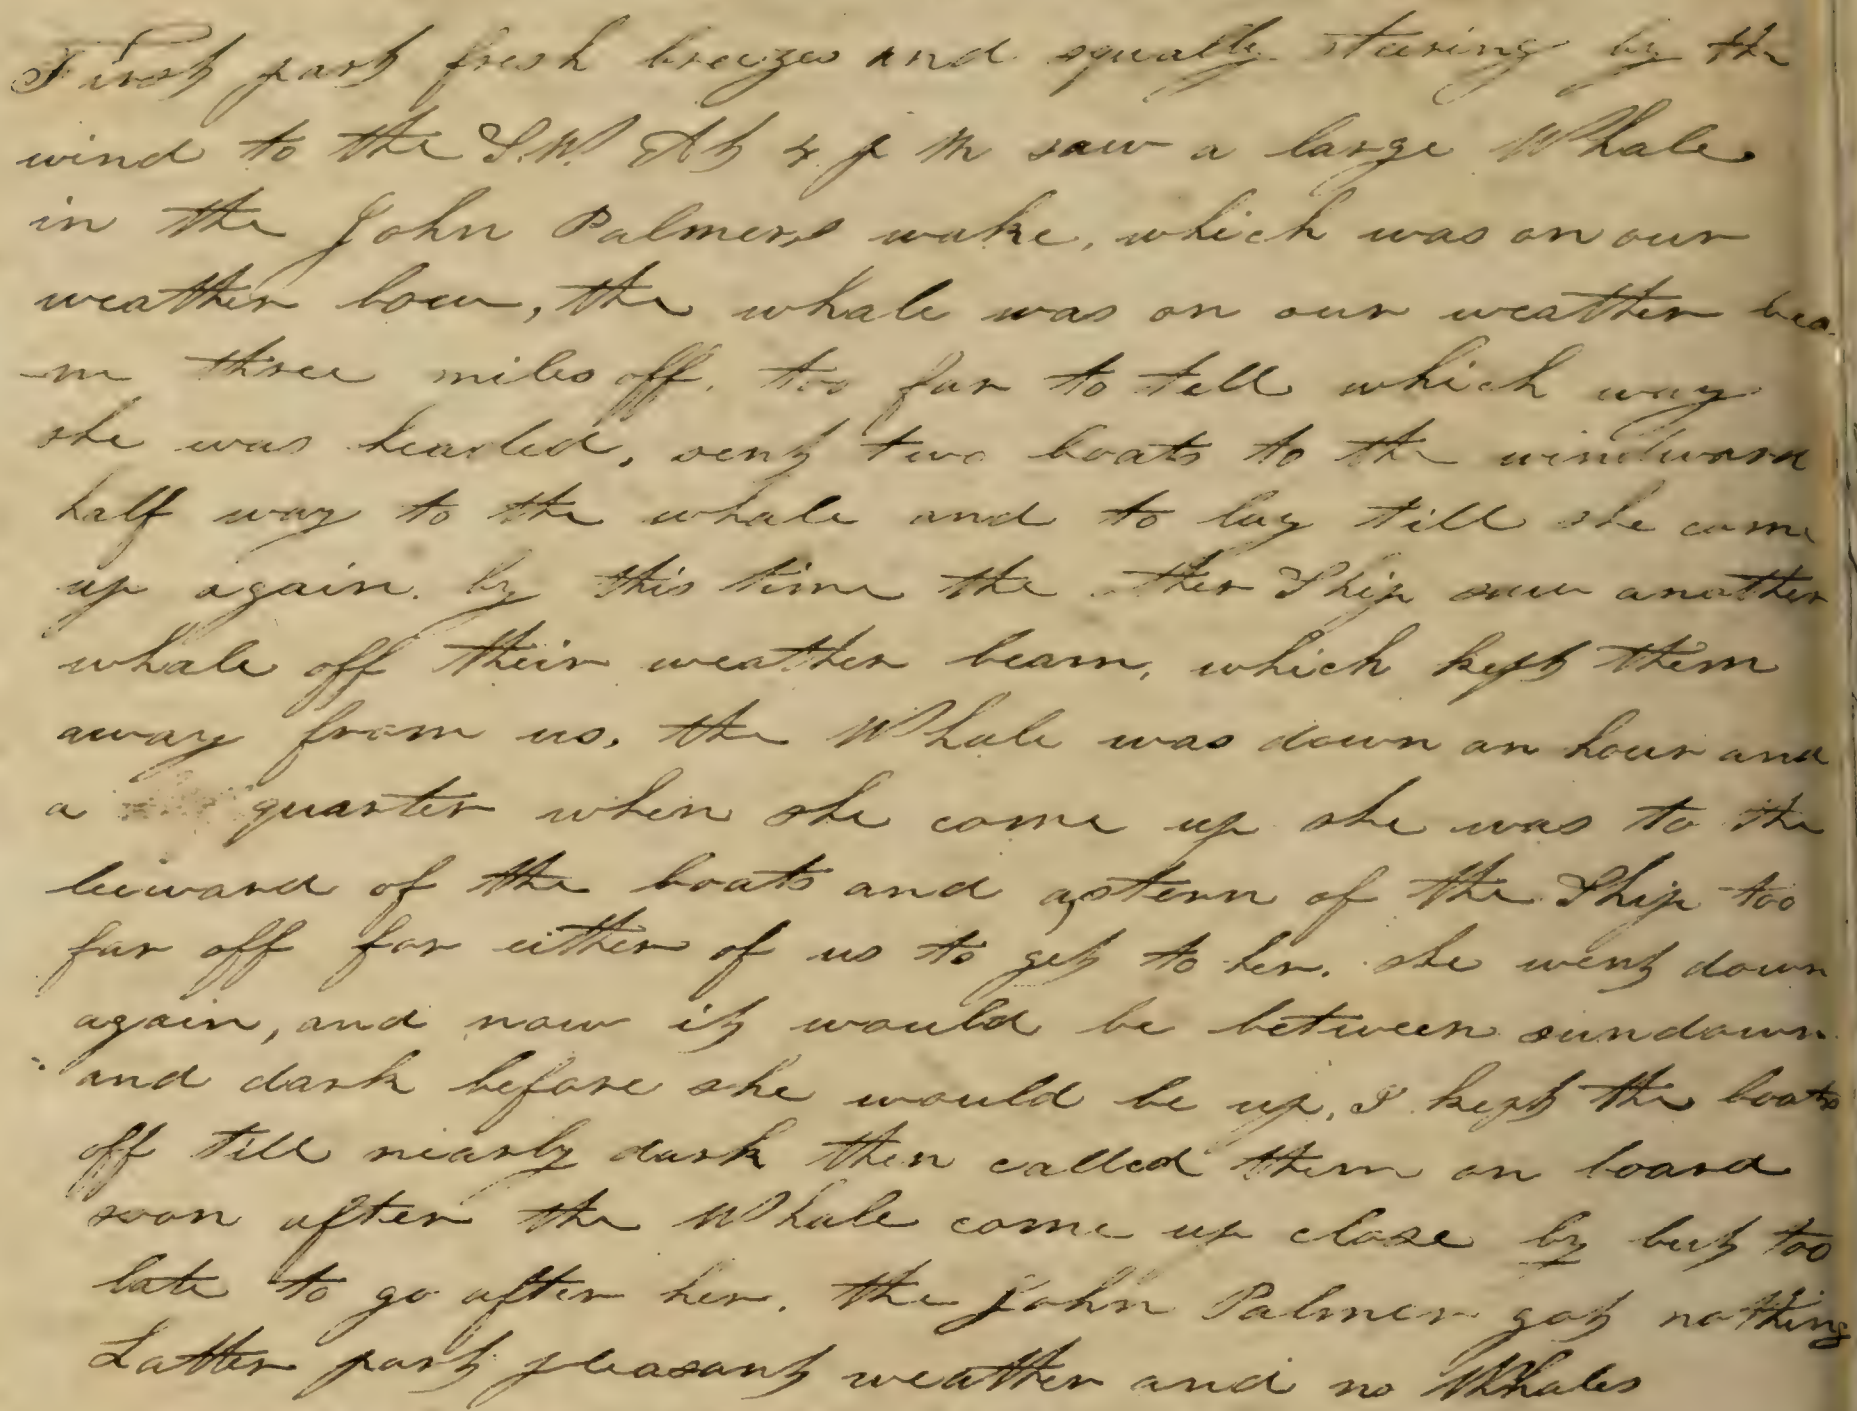 First part fresh breezes and squally stearing by the
wind to the S.W. At 4 p m saw a large Whale
in the John Palmers wake, which was on our
weather bow, the whale was on our weather bea-
-m three miles off. too far to tell which way
she was headed, sent two boats to the windward
half way to the whale and to lay till she come
up again. by this time the other Ship saw another
whale off their weather beam, which kept them
away from us. the Whale was down an hour and
a quarter when she come up she was to the
leeward of the boats and astern of the Ship too
far off for either of us to get to her. she went down
again, and now it would be between sundown
and dark before she would be up, I kept the boats
off till nearly dark then called them on board
soon after the Whale come up close by but too
late to go after her. the John Palmer got nothing
Latter part pleasant weather and no Whales